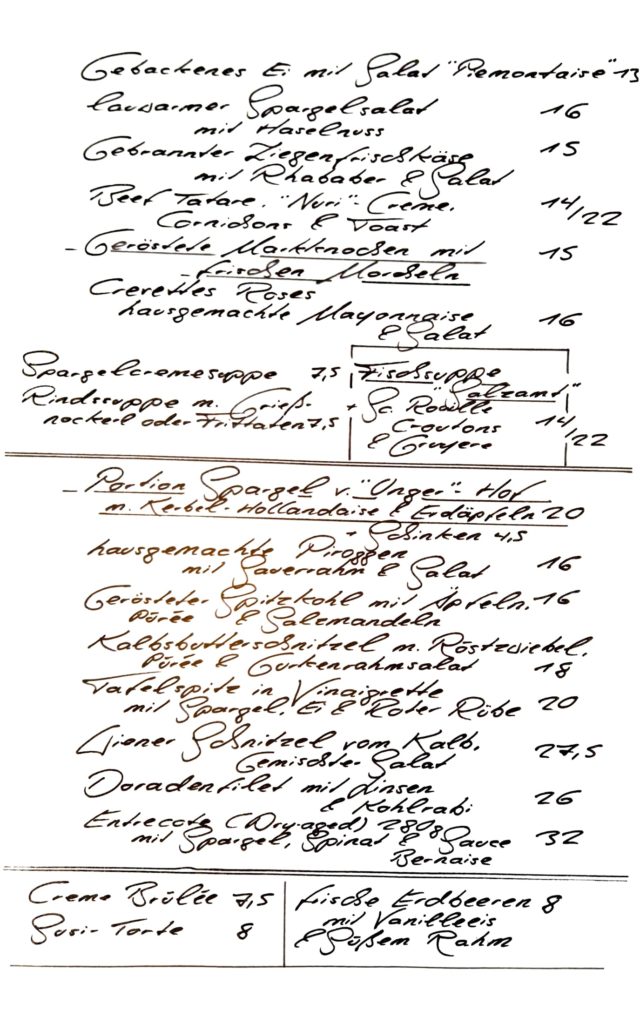 Gebackenes Ei mit Salat "Piemontaise" 13
lauwarmer Spargelsalat 16
mit Haselnuss
Gebrannter Ziegenfrischkäse 15
mit Rhababer & Salat
Beef Tatare, "Nuri"-Creme, 14/22
Cornichons & Toast
- Geröstete Markknochen mit 15
- frischen Morcheln
Crevettes Roses
hausgemachte Mayonnaise 16
& Salat
Spargelcremesuppe 7,5
Rindssuppe m. Grieß-
nockerl oder Frittaten 7,5
Fischsuppe
"Salzamt"
+ Sc. Rouille
Croutons 14/22
& Gruyere
- Portion Spargel v. "Unger"-Hof
m. Kerbel-Hollandaise & Erdäpfeln 20
+ Schinken 4,5
hausgemachte Piroggen 16
mit Sauerrahm & Salat
Gerösteter Spitzkohl mit Äpfeln, 16
Pürée & Salzmandeln
Kalbsbutterschnitzel m. Röstzwiebel,
Pürée & Gurkenrahmsalat 18
Tafelspitz in Vinaigrette
mit Spargel, Ei & Roter Rübe 20
Wiener Schnitzel vom Kalb, 27,5
Gemischter Salat
Doradenfilet mit Linsen 26
& Kohlrabi
Entrecote (Dry-aged) 280g
mit Spargel, Spinat & Sauce 32
Bernaise
Creme Brûlée 7,5
Susi-Torte 8
frische Erdbeeren 8
mit Vanilleeis
& Süßem Rahm